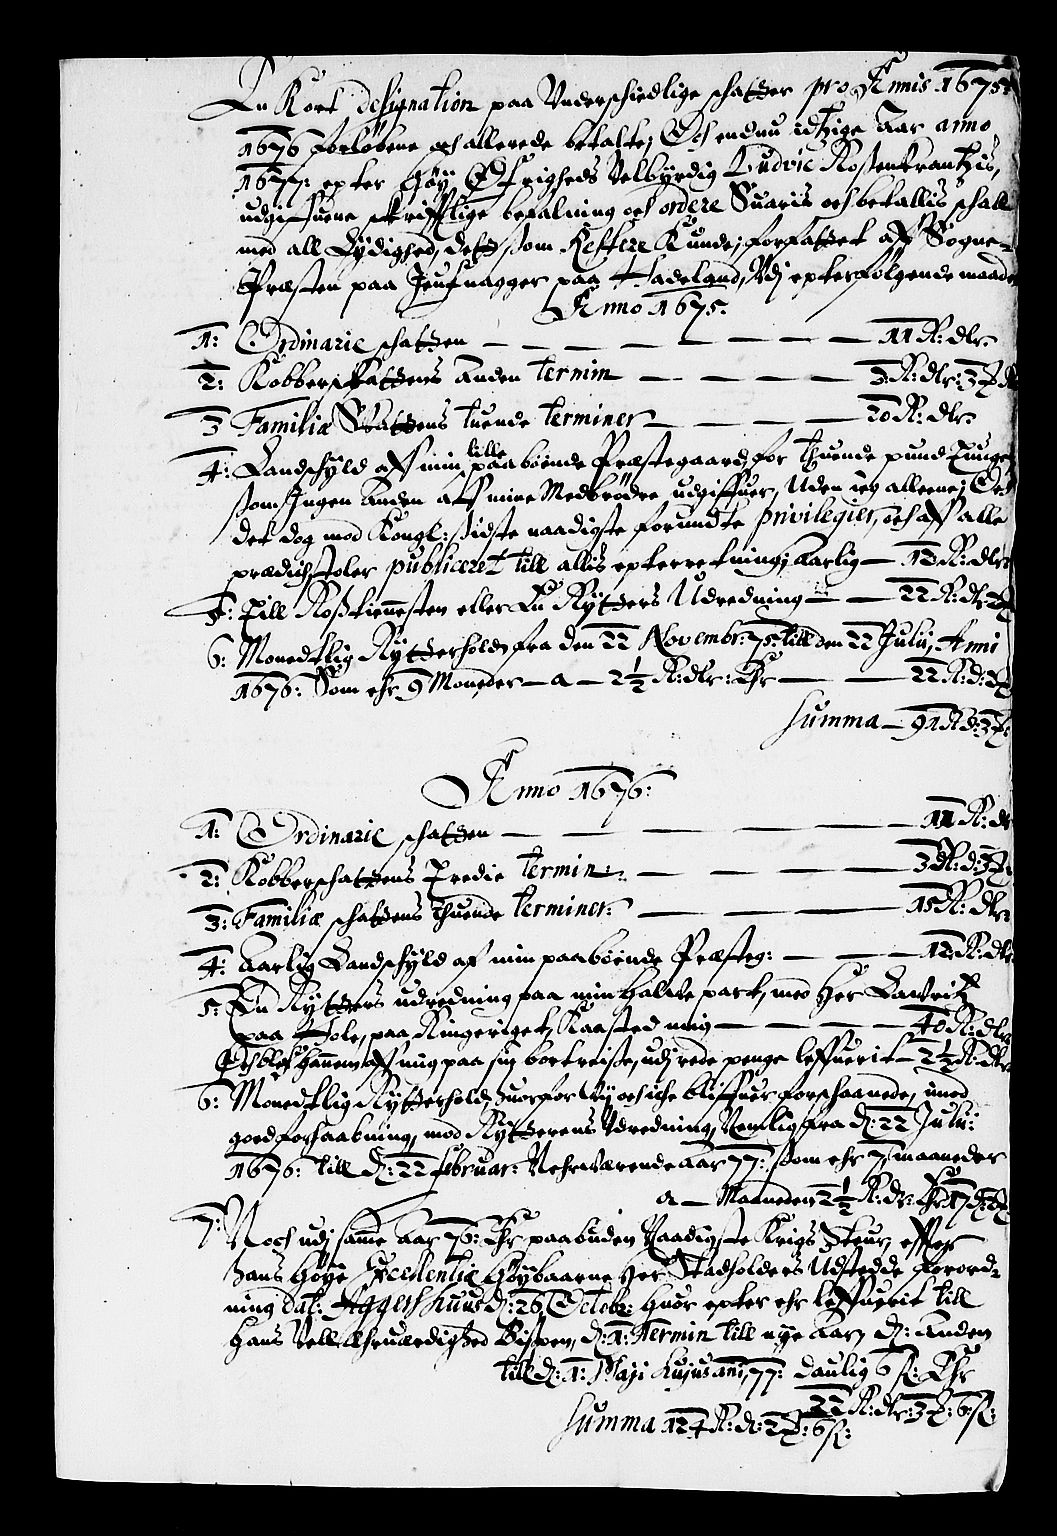 En Kort designation paa Underschiedlige schatter pro Annis 1675:
1676 forløbene och allerede betalte; Och endnu idtzige Aar anno
1677: epter Høy Øfrigheds Velbyrdig Ludvic Rosenkrantzis,
udgifuene skrifftlige befalning och ordere Suaris och betallis schall
med all Lydighed, dets som restere Kunde; forfattet aff Sogne-
Præsten paa Jeufnagger paa Hadeland, Udj epterfølgende maade
Anno 1675.
1: Ordinarie schatten — 11 R: dlr.
2: Kobberskattens Anden termin — 3 R: dlr: 3
3 Familiæ Skattens tuende terminer — 20 R: dlr.
4: Landschyld aff min lille paaboende Præstegaard, for thuende pund Tunge
som Ingen Anden aff mine Medbrødre udgiffuer, Uden ieg alleene; Och
det dog mod Kongl: sidste naadigste forundte privilegier, och aff alle
prædichstoler publiceret till allis epterretning; Aarlig — 12 R: dlr
5: Till Rostienesten eller En Rytters Udredning — 22 R: dlr 2
6: Monedtlig Rytterhold fra den 22 Novembr: 75: till den 22 Julij, Anni
1676: Som ehr 9 Moneder — a — 2½ R: dlr: Ehr — 22 R: d: 2
Summa — 91 R d: 3
Anno 1676:
1: Ordinarie schatten — 11 R: dlr
2: Kobberschattens Tredie termin: — 3 R: d: 3
3: Familiæ schattens thuende terminer: — 15 R: dlr
4: Aarlig Landschyld af min paaboende Præsteg: — 12 R: dlr
5: En Rytters udredning paa min halve part, med Her Lawritz
paa Hole, paa Ringeriget, Kaasted mig — 40 R: dlr
Och blef hannem aff mig paa sin bortreise, udj rede penge leffuerit — 2½ R: dlr
6: Monedtlig Rytterhold, huorfor Wj och iche bliffuer forschaanede, imod
goed forhaabning, mod Rytterens Udredning, Nemlig fra d: 22 Julij:
1676: till d: 22 februar: Nerværende Aar 77: som ehr 7 maaneder
a — Maaneden 2½ R: dr: Ehr 17 d: 2
7: Noch udj samme Aar 76: Ehr paabuden Naadigste Krigs Steur, effter
hans høye Excellentiæ Høybaarne Her Stadholders Udstedde forord-
ning dat: Aggershuus d: 26 Octobr: huor epter ehr leffuerit till
hans Vellærhruærdighed Bispen, d: 1: Termin till nye Aar, d: Anden
till d: 1: Maji hujus ani, 77: daulig 6 s: Ehr
22 R: dlr: 3: 6: s:
Summa 124 R: d: 2: 6 s: